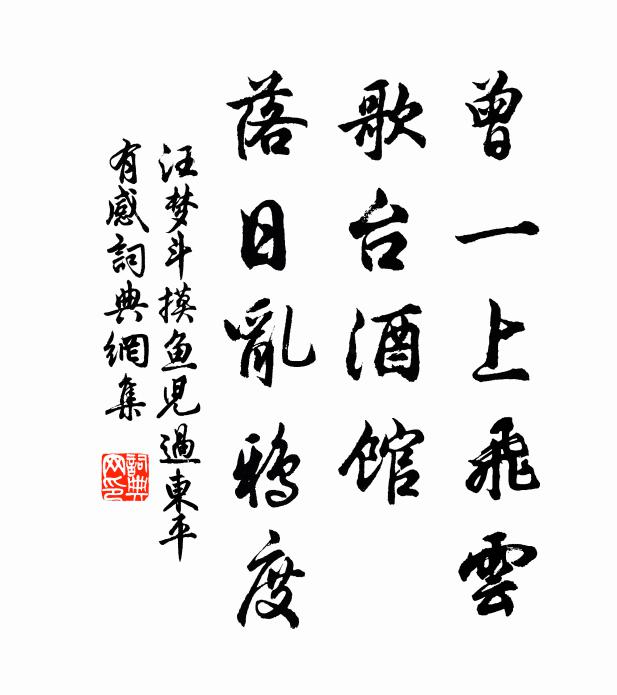 曾一上飛雲
歌台酒館
落日亂鴉度
汪梦斗摸鱼児過東平
有感詞典網集
詞典網印